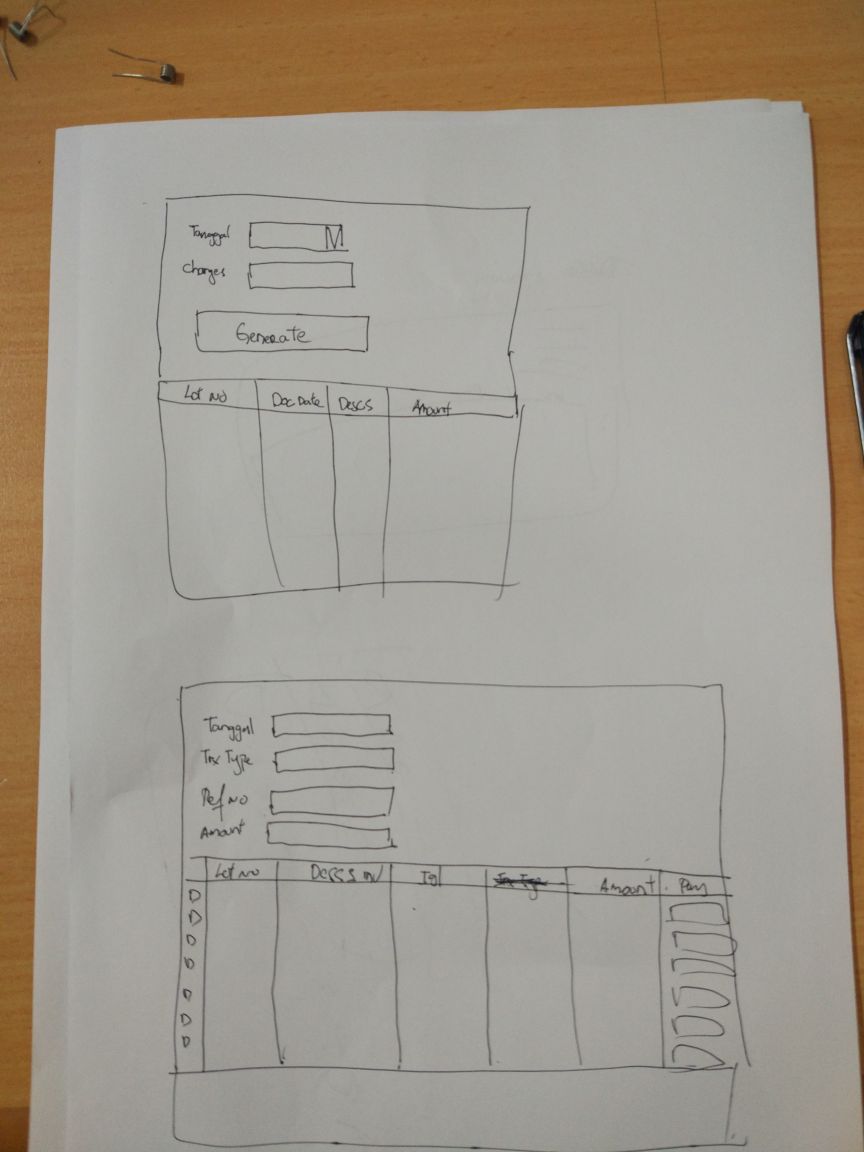 Tanggal
Charges
Generate
Lot No Doc Date Descs Amount
Tanggal
Trx Type
Ref No
Amount
Lot No Descs Inv Amount Pay